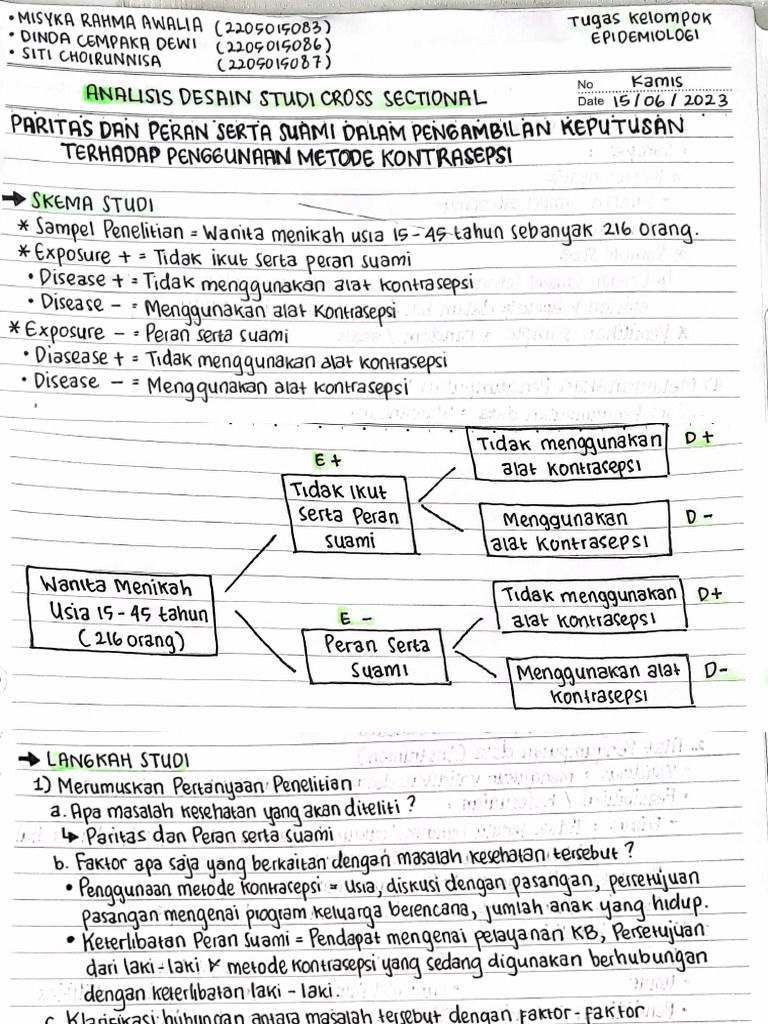 • MISYKA RAHMA AWALIA (2205015083)
• DINDA CEMPAKA DEWI (2205015086)
• SITI CHOIRUNNISA (2205015087)
Tugas Kelompok
EPIDEMIOLOGI
No Kamis
Date 15/06/2023
ANALISIS DESAIN STUDI CROSS SECTIONAL
PARITAS DAN PERAN SERTA SUAMI DALAM PENGAMBILAN KEPUTUSAN
TERHADAP PENGGUNAAN METODE KONTRASEPSI
→ SKEMA STUDI
* Sampel Penelitian = Wanita menikah usia 15-45 tahun sebanyak 216 orang.
* Exposure + = Tidak ikut serta peran suami
• Disease + = Tidak menggunakan alat kontrasepsi
• Disease - = Menggunakan alat kontrasepsi
* Exposure - = Peran serta suami
• Diasease + = Tidak menggunakan alat kontrasepsi
• Disease - = Menggunakan alat kontrasepsi
E+
Tidak Ikut
Serta Peran
Suami
Tidak menggunakan
alat kontrasepsi
D+
Menggunakan
alat kontrasepsi
D-
Wanita Menikah
Usia 15-45 tahun
(216 orang)
E-
Peran Serta
Suami
Tidak menggunakan
alat kontrasepsi
D+
Menggunakan alat
kontrasepsi
D-
→ LANGKAH STUDI
1) Merumuskan Pertanyaan Penelitian
a. Apa masalah kesehatan yang akan diteliti ?
↳ Paritas dan Peran serta suami
b. Faktor apa saja yang berkaitan dengan masalah kesehatan tersebut ?
• Penggunaan metode kontrasepsi = Usia, diskusi dengan pasangan, persetujuan
pasangan mengenai program keluarga berencana, jumlah anak yang hidup.
• Keterlibatan Peran Suami = Pendapat mengenai pelayanan KB, Persetujuan
dari laki-laki & metode kontrasepsi yang sedang digunakan berhubungan
dengan keterlibatan laki-laki.
c. Klarifikasi hubungan antara masalah tersebut dengan faktor-faktor